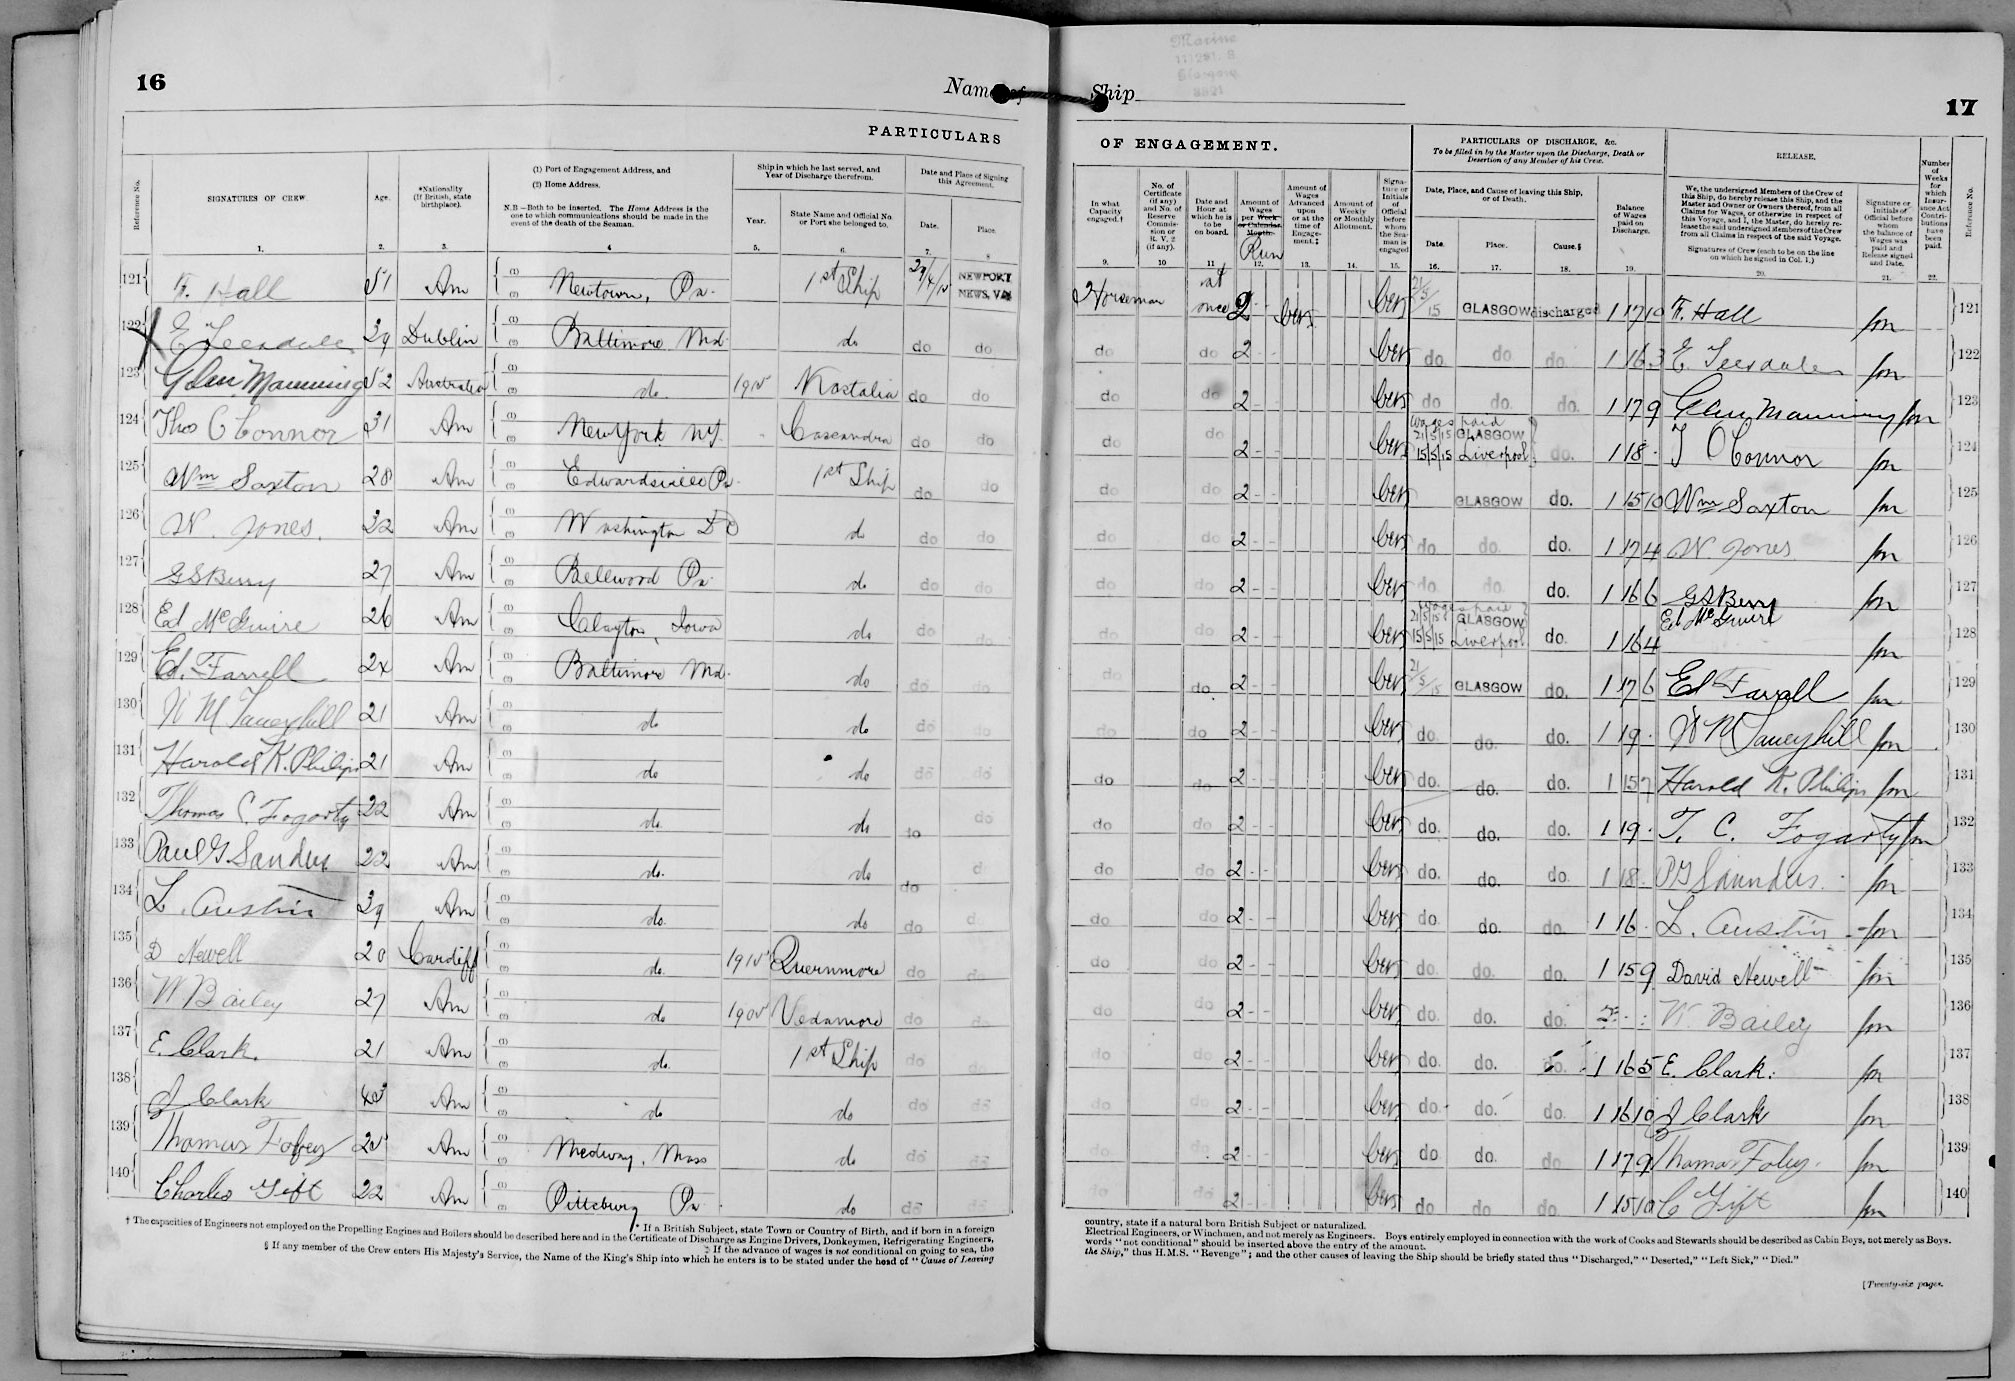 16
Name of
PARTICULARS
Reference No.
SIGNATURES OF CREW.
Age.
*Nationality
(If British, state
birthplace).
(1) Port of Engagement Address, and
(2) Home Address.
N.B—Both to be inserted. The Home Address is the
one to which communications should be made in the
event of the death of the Seaman.
Ship in which he last served, and
Year of Discharge therefrom.
Year.
State Name and Official No.
or Port she belonged to.
Date and Place of Signing
this Agreement.
Date.
Place.
1. 2. 3. 4 5. 6. 7. 8
121 F. Hall 51 Am Newtown, Pa. 1st Ship 29/4/15 NEWPORT NEWS, VA
122 E Teesdale 39 Dublin Baltimore Md. do do do
123 Glen Manning 52 Australia do. 1915 Kastalia do do
124 Thos O Connor 31 Am New York NY. Cassandra do do
125 Wm Saxton 28 Am Edwardsville Pa. 1st Ship do do
126 W. Jones. 32 Am Washington DC do do do
127 G S Berry 27 Am Bellwood Pa. do do do
128 Ed McGuire 26 Am Clayton, Iowa do do do
129 Ed. Farrell 24 Am Baltimore Md. do do do
130 W M Taneyhill 21 Am do do do do
131 Harold K. Philips 21 Am do do do do
132 Thomas C Fogarty 22 Am do. do do do
133 Paul G Sanders 22 Am do. do do d
134 L. Austin 39 Am do. do do d.
135 D Newell 20 Cardiff do. 1915 Quernmore do do
136 W Bailey 27 Am do 1905 Vedamore do do
137 E. Clark. 21 Am do. 1st Ship do do
138 J Clark 43 Am do do do do
139 Thomas Foley 25 Am Medway, Mass do do do
140 Charles Gift 22 Am Pittsburg Pa. do do do
† The capacities of Engineers not employed on the Propelling Engines and Boilers should be described here and in the Certificate of Discharge as Engine Drivers, Donkeymen, Refrigerating Engineers,
* If a British Subject, state Town or Country of Birth, and if born in a foreign
‡ If the advance of wages is not conditional on going to sea, the
§ If any member of the Crew enters His Majesty's Service, the Name of the King's Ship into which he enters is to be stated under the head of "Cause of Leaving
Marine
Glasgow
Ship
17
OF ENGAGEMENT.
PARTICULARS OF DISCHARGE, &c.
To be filled in by the Master upon the Discharge, Death or
Desertion of any Member of his Crew.
RELEASE.
In what
Capacity
engaged.†
No. of
Certificate
(if any)
and No. of
Reserve
Commis-
sion or
R. V. 2
(if any).
Date and
Hour at
which he is
to be
on board.
Amount of
Wages
per Week
or Calendar
Month.
Run
Amount of
Wages
Advanced
upon
or at the
time of
Engage-
ment.‡
Amount of
Weekly
or Monthly
Allotment.
Signa-
ture or
Initials
of
Official
before
whom
the Sea-
man is
engaged
Date, Place, and Cause of leaving this Ship,
or of Death.
Date.
Place.
Cause.§
Balance
of Wages
paid on
Discharge.
We, the undersigned Members of the Crew of
this Ship, do hereby release this Ship, and the
Master and Owner or Owners thereof, from all
Claims for Wages, or otherwise in respect of
this Voyage, and I, the Master, do hereby re-
lease the said undersigned Members of the Crew
from all Claims in respect of the said Voyage.
Signatures of Crew (each to be on the line
on which he signed in Col. 1.)
Signature or
Initials of
Official before
whom
the balance of
Wages was
paid and
Release signed
and Date.
Number
of
Weeks
for
which
Insur-
ance Act
Contri-
butions
have
been
paid.
Reference No.
9. 10 11 12. 13. 14. 15. 16. 17. 18. 19. 20. 21. 22.
Horseman at once 2 - - 21/5/15 GLASGOW discharged 1 17 10 F. Hall 121
do do 2 - - do do do 1 16 3 E Teesdale 122
do do 2 - - do do. do. 1 17 9 Glen Manning 123
do do 2 - - Wages paid 21/5/15 GLASGOW 15/5/15 Liverpool do. 1 18 - T O Connor 124
do do 2 - - GLASGOW do. 1 15 10 Wm Saxton 125
do do 2 - - do do. do. 1 17 4 W Jones 126
do do 2 - - do do. do. 1 16 6 G S Berry 127
do do 2 - - Wages paid 21/5/15 GLASGOW 15/5/15 Liverpool do. 1 16 4 Ed McGuire 128
do do. 2 - - 21/5/15 GLASGOW do. 1 17 6 Ed Farrell 129
do do 2 - - do. do. do. 1 19 - W M Taneyhill 130
do do 2 - - do. do. do. 1 15 7 Harold K. Philips 131
do do 2 - - do. do. do. 1 19 - T. C. Fogarty 132
do do 2 - - do. do. do. 1 18 - P G Saunders. 133
do do 2 - - do. do. do. 1 16 - L. Austin 134
do do 2 - - do. do. do. 1 15 9 David Newell 135
do do 2 - - do. do. do. W Bailey 136
do do 2 - - do. do. do. 1 16 5 E. Clark. 137
do do 2 - - do. do. do. 1 16 10 J Clark 138
do do 2 - - do do. do 1 17 9 Thomas Foley. 139
do do 2 - - do do. do 1 15 10 C Gift 140
country, state if a natural born British Subject or naturalized.
Electrical Engineers, or Winchmen, and not merely as Engineers. Boys entirely employed in connection with the work of Cooks and Stewards should be described as Cabin Boys, not merely as Boys.
words "not conditional" should be inserted above the entry of the amount.
the Ship," thus H.M.S. "Revenge"; and the other causes of leaving the Ship should be briefly stated thus "Discharged," "Deserted," "Left Sick," "Died."
[Twenty-six pages.